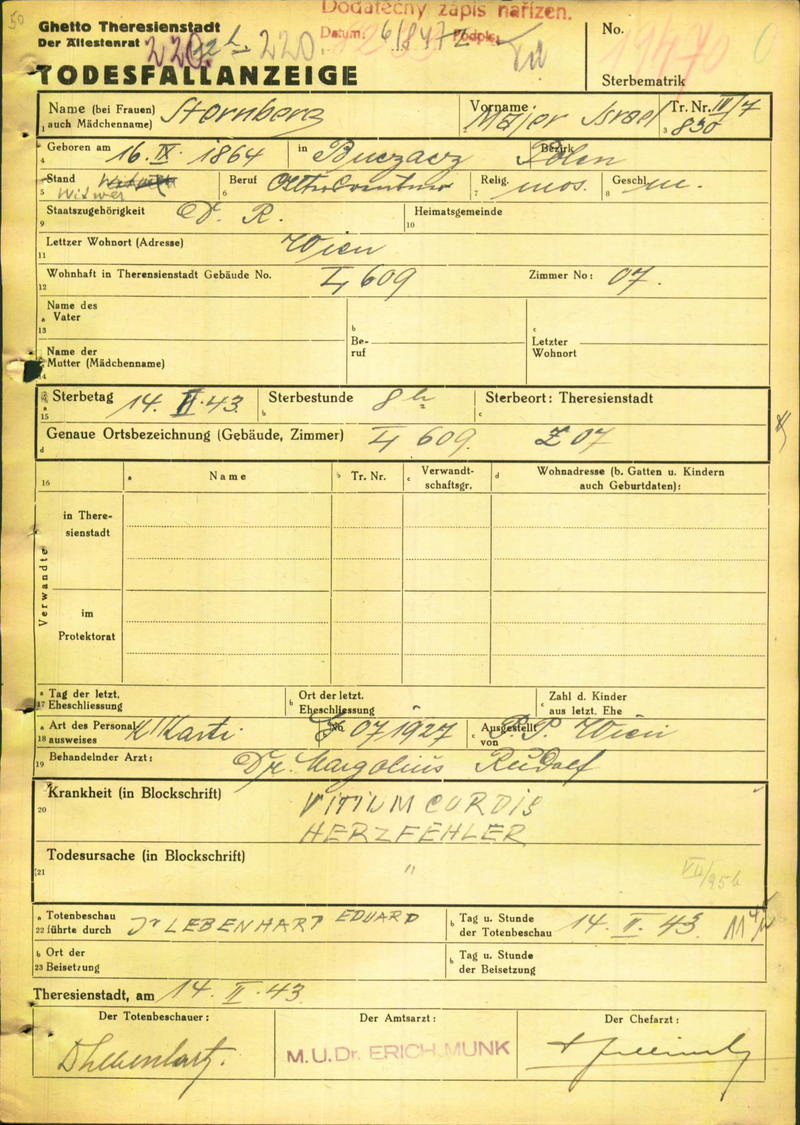 50
Ghetto Theresienstadt
Der Ältestenrat
220
Dodatečný zápis nařízen.
Datum: 6/8 47 Podpis
TODESFALLANZEIGE
No. 19470
Sterbematrik
Name (bei Frauen) auch Mädchenname) Sternberg
Vorname Majer Israel
Tr. Nr. IV/7 830
Geboren am 16. IX. 1864 in Buczacz Bezirk Polen
Stand Witwer Beruf Relig. mos. Geschl. m.
Staatszugehörigkeit D. R. Heimatsgemeinde
Lettzer Wohnort (Adresse) Wien
Wohnhaft in Therensienstadt Gebäude No. L 609 Zimmer No: 07.
Name des Vater
Be-ruf
Letzter Wohnort
Name der Mutter (Mädchenname)
Sterbetag 14. II. 43. Sterbestunde 8 h Sterbeort: Theresienstadt
Genaue Ortsbezeichnung (Gebäude, Zimmer) L 609. Z 07
16 Name Tr. Nr. Verwandt-schaftsgr. Wohnadresse (b. Gatten u. Kindern auch Geburtdaten):
Verwandte
in There-sienstadt
im Protektorat
Tag der letzt. Eheschliessung
Ort der letzt. Eheschliessung
Zahl d. Kinder aus letzt. Ehe
Art des Personal ausweises K Karte No 071927 Ausgestellt von P. P. Wien
Behandelnder Arzt: Dr. Margolius Rudolf
Krankheit (in Blockschrift) VITIUM CORDIS
HERZFEHLER
Todesursache (in Blockschrift) "
VII/95b
Totenbeschau führte durch Dr LEBENHART EDUARD Tag u. Stunde der Totenbeschau 14. II. 43.
Ort der Beisetzung
Tag u. Stunde der Beisetzung
Theresienstadt, am 14. II. 43
Der Totenbeschauer: Der Amtsarzt: Der Chefarzt:
Dr Lebenhart. M.U.Dr. ERICH MUNK